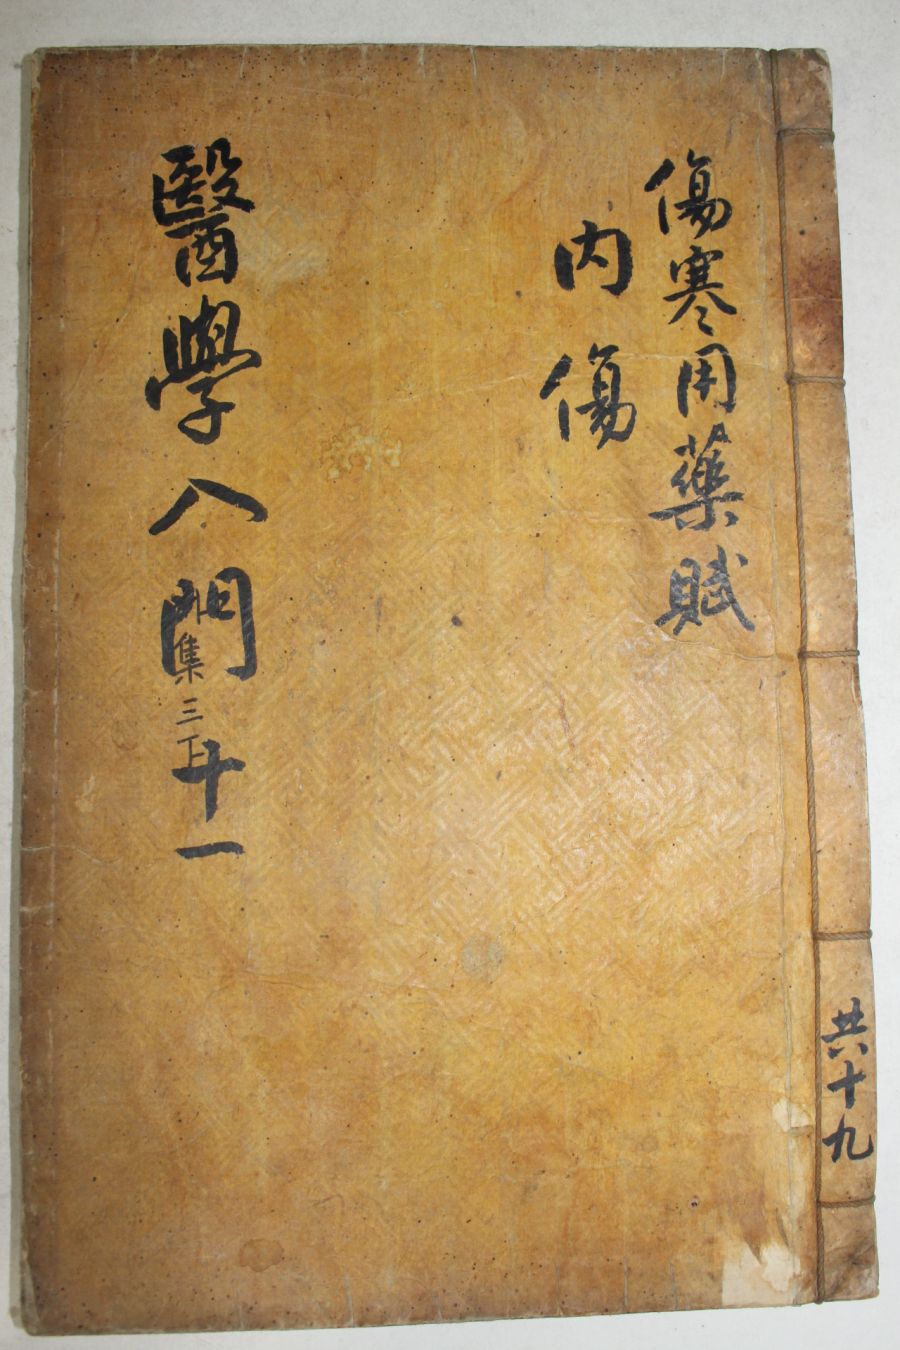 傷寒用藥賦
内傷
醫學入門 十一
集三下
共十九